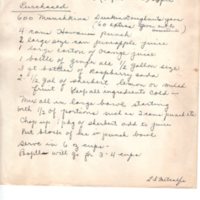 Purchased
600 Marachinos
4 cans Hawaiian Punch
2 large size can pineapple juice
1 large carton of orange juice
1 bottle of ginger ale ½ gallon size
3 qt bottles of Raspberry soda
2 ½ gal of sherbet lemon or mild
fruit & Keep all ingredients cold -
Mix all in large bowl starting
with ½ of portions such as 2 cans punch etc
Chop up 1 pkg of sherbet add to juice
Put block of ice in punch bowl
Serve in 6 oz cups -
Bottles will go for 3-4 cups